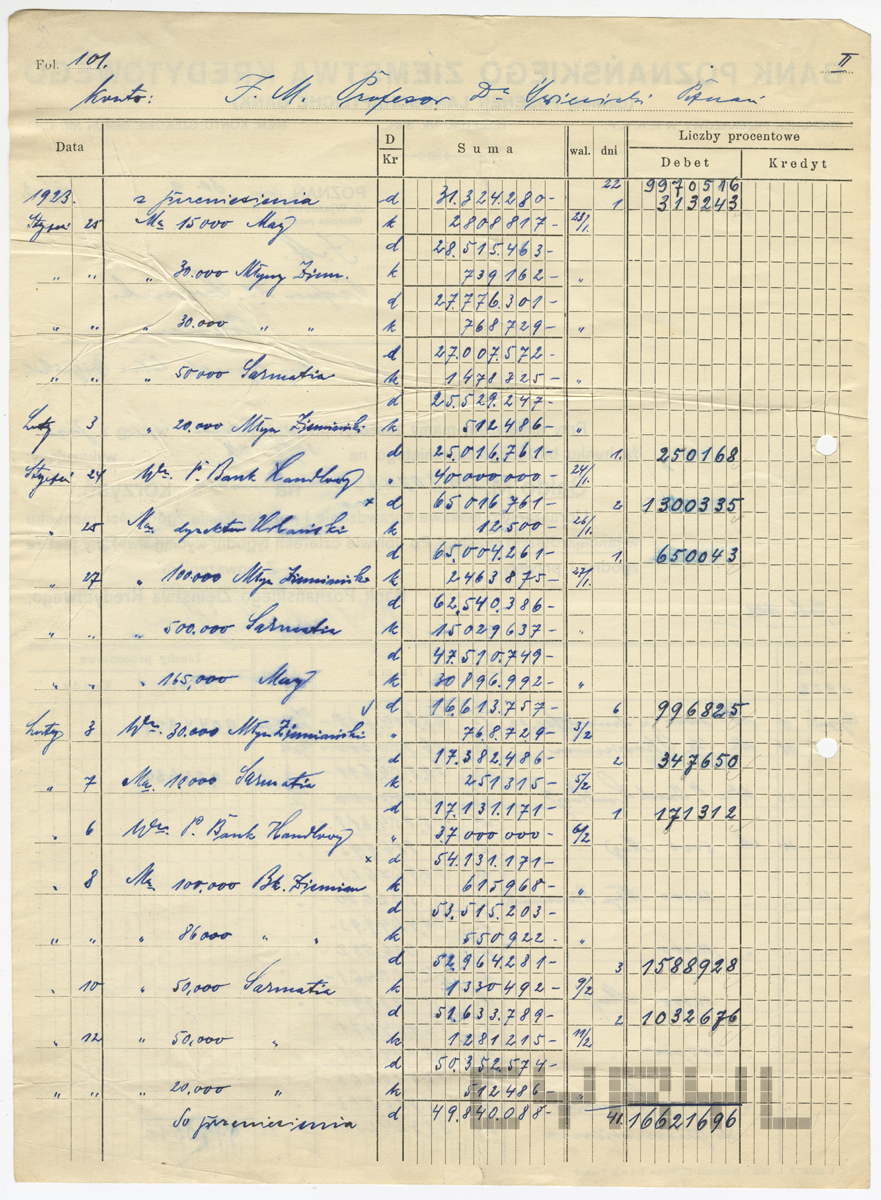 Fol. 101. II
Konto: J. M. Profesor Dr Święcicki Poznań
Data D Kr Suma wal. dni Liczby procentowe
Debet Kredyt
22 9970516
1923. z przeniesienia d 31.324.280- 1 313243
Styczeń 25 Ma 15000 May k 2808817- 23/1.
d 28.515.463-
" " " 30.000 Młyny Ziem. k 739162- "
d 27.776.301-
" " " 30.000 " " k 768729- "
d 27.007.572-
" " " 50000 Sarmatia k 1478325- "
d 25.529.247-
Luty 3 " 20.000 Młyn Ziemiański k 512486- "
d 25.016.761- 1. 250168
Styczeń 24 Wn. P. Bank Handlowy " 40000000- 24/1.
x d 65016.761- 2 1300335
" 25 Ma dyrektor Urbański k 12500- 26/1.
d 65.004.261- 1. 650043
" 27 " 100.000 Młyn Ziemiański k 2463875- 27/1.
d 62.540.386-
" " " 500.000 Sarmatia k 15029637- "
d 47.510.749-
" " " 165,000 May k 30896.992- "
d 16.613.757- 6 996825
Luty 3 Wn. 30.000 Młyn Ziemiański " 768.729- 3/2
d 17.382.486- 2 347650
" 7 Ma. 10,000 Sarmatia k 251315- 5/2
d 17.131.171- 1 171312
" 6 Wn. P. Bank Handlowy " 37000000- 6/2
x d 54.131.171-
" 8 Ma 100,000 Bk. Ziemian k 615968- "
d 53.515.203-
" " " 86000 " " k 550922- "
d 52.964.281- 3 1588928
" 10 " 50,000 Sarmatia k 1330492- 9/2
d 51.633.789- 2 1032676
" 12 " 50,000 " k 1281215- 11/2
d 50.352.574-
" " " 20,000 " k 512486- "
Do przeniesienia d 49.840.088- 41. 16621696
CYRYL